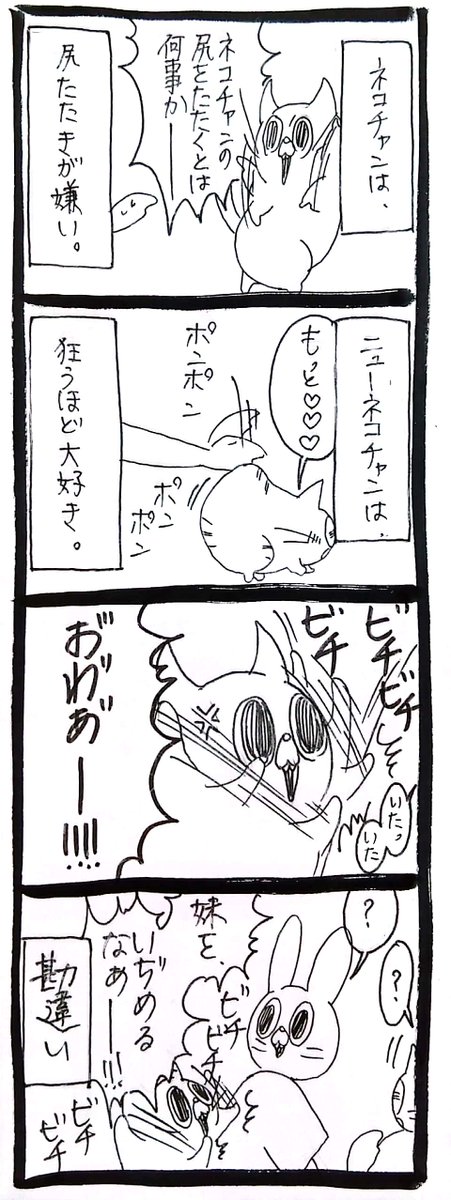 ネコチャンは、
ネコチャンの
尻をたたくとは
何事かー
尻たたきが嫌い。
ニューネコチャンは、
もっと♡♡♡
ポンポン
ポン
ポン
狂うほど大好き。
ビチビチ
ビチ
いたっ
いた
お゛わ゛あ゛ー!!!!
?
?
妹を、
いぢめる
なぁー!!!
ビチ
ビチ
勘違い
ビチ
ビチ